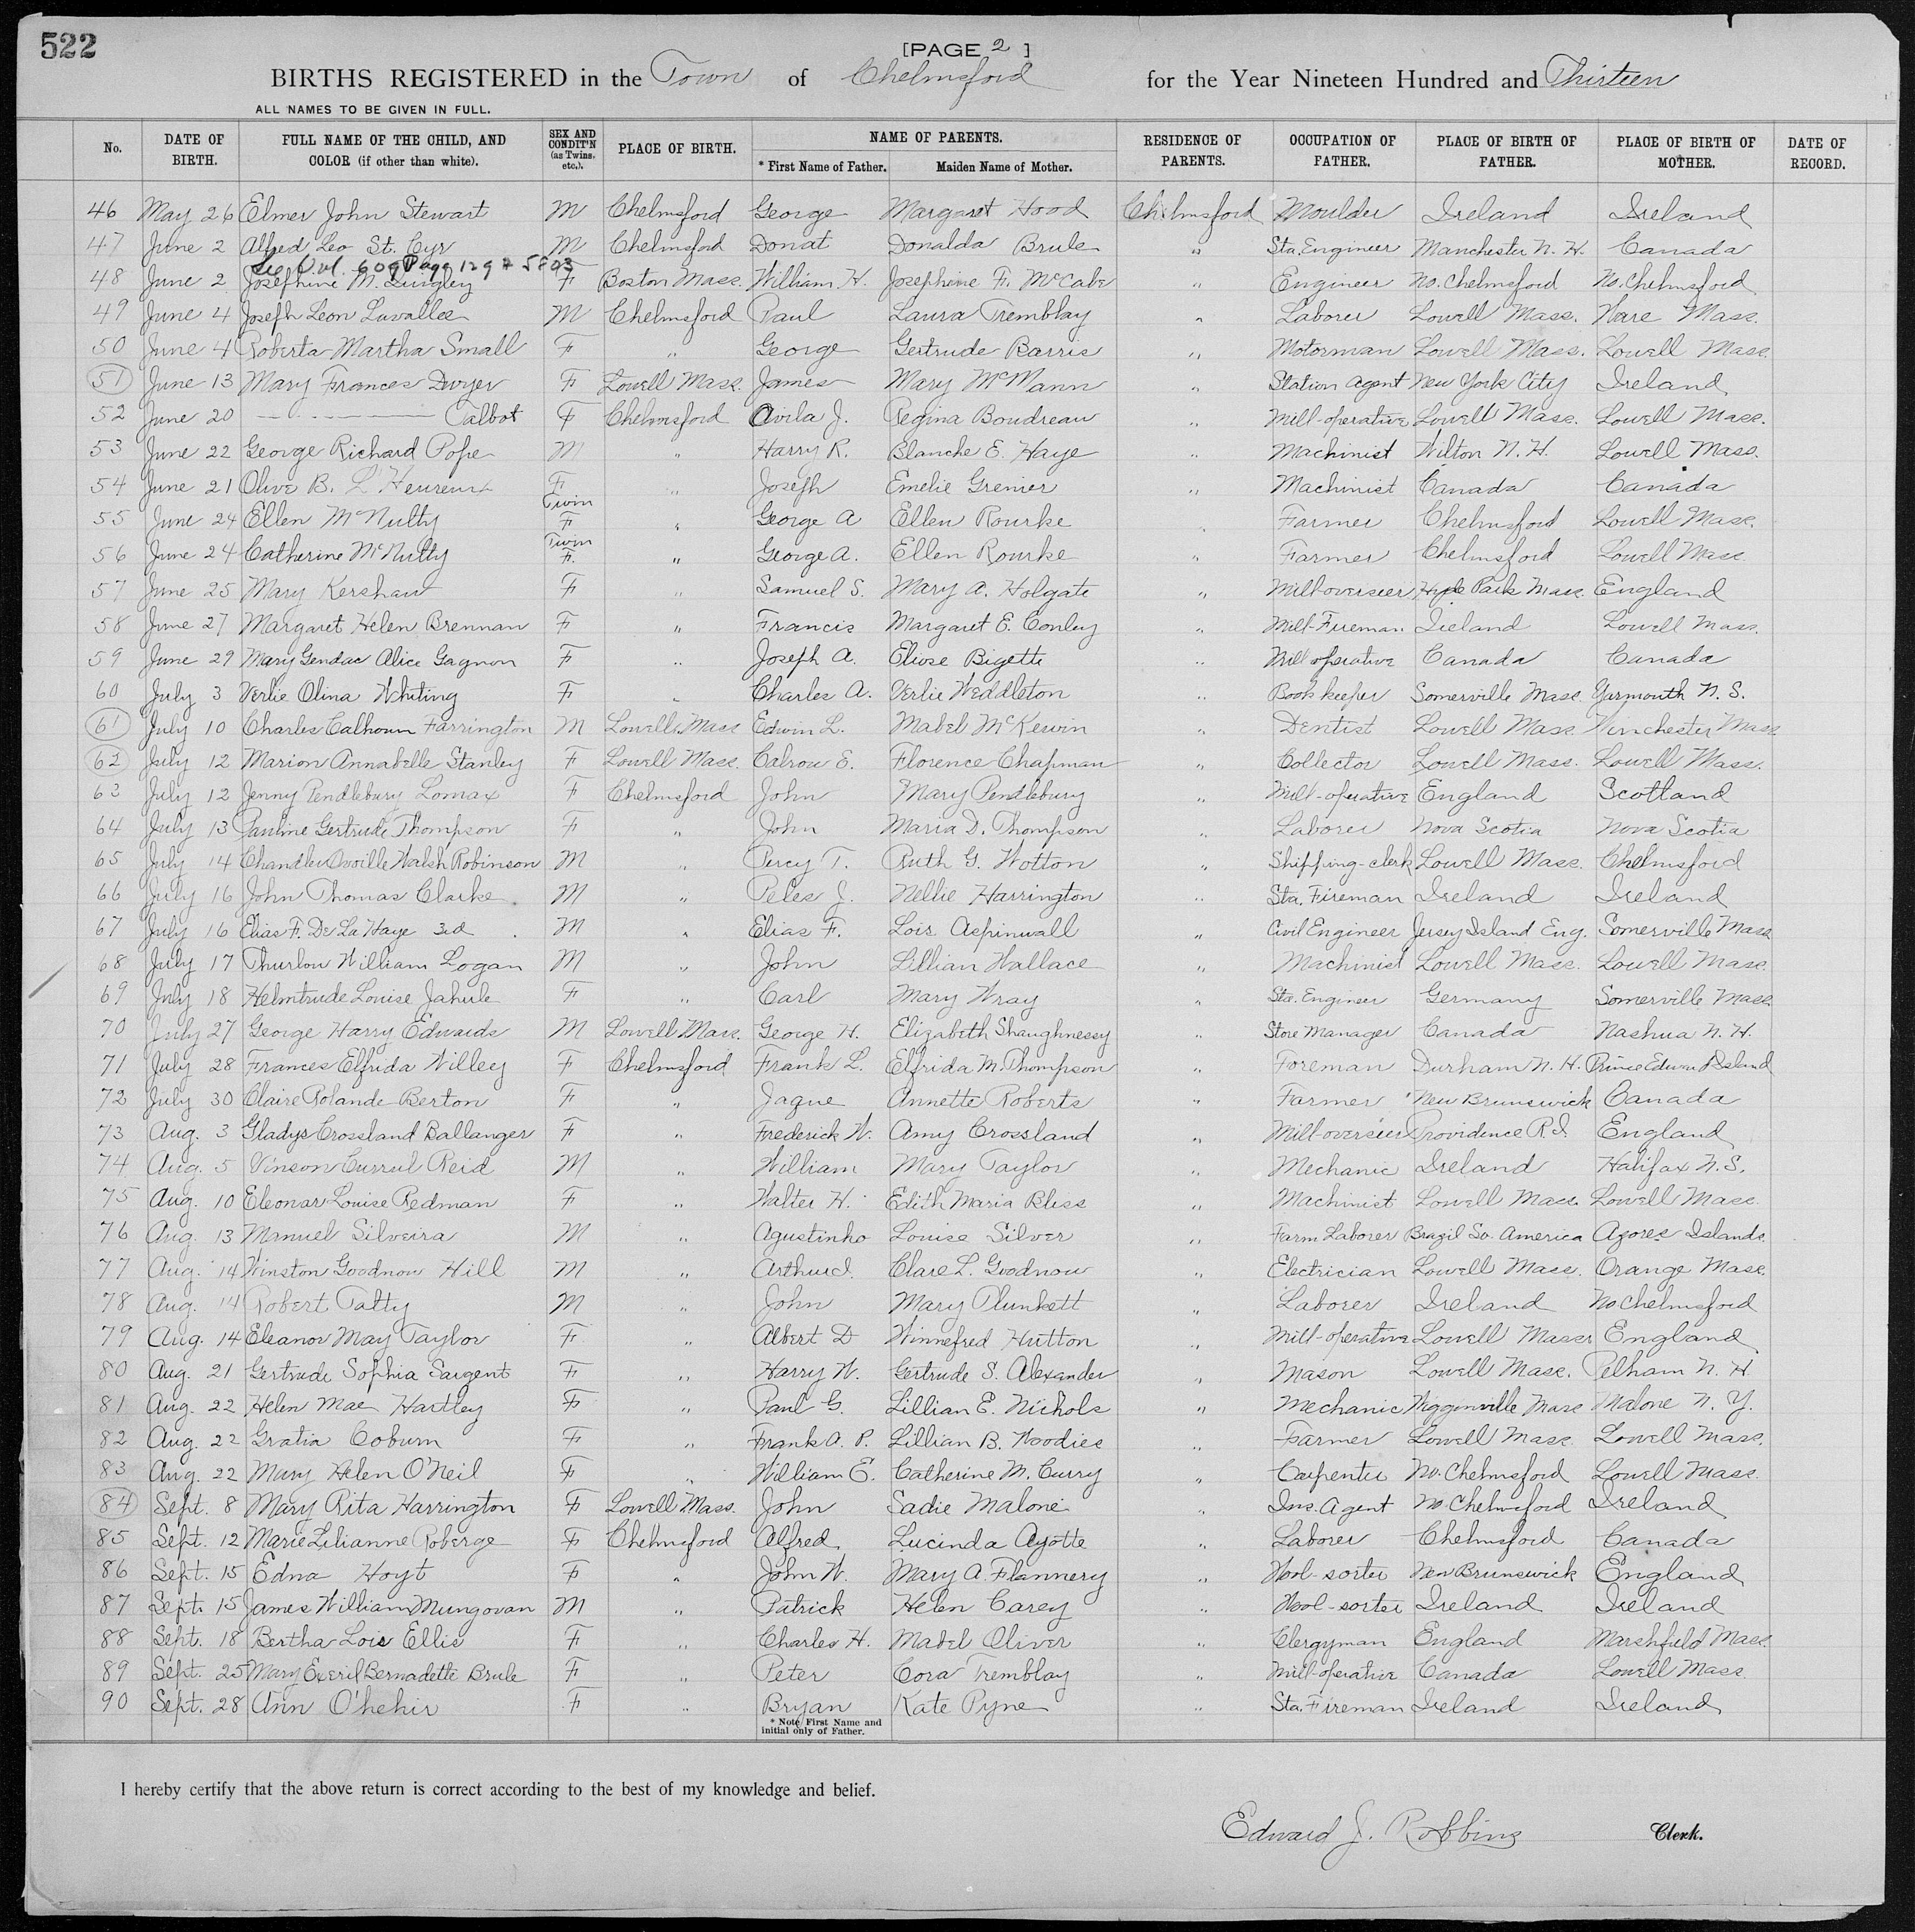 522
[PAGE 2 ]
BIRTHS REGISTERED in the Town of Chelmsford for the Year Nineteen Hundred and Thirteen
ALL NAMES TO BE GIVEN IN FULL.
No. DATE OF BIRTH. FULL NAME OF THE CHILD, AND COLOR (if other than white). SEX AND CONDIT'N (as Twins, etc.). PLACE OF BIRTH. NAME OF PARENTS. * First Name of Father. Maiden Name of Mother. RESIDENCE OF PARENTS. OCCUPATION OF FATHER. PLACE OF BIRTH OF FATHER. PLACE OF BIRTH OF MOTHER. DATE OF RECORD.
46 May 26 Elmer John Stewart M Chelmsford George Margaret Hood Chelmsford Moulder Ireland Ireland
47 June 2 Alfred Leo St. Cyr M Chelmsford Donat Donalda Brule " Sta. Engineer Manchester N. H. Canada
See Vol. 609 Page 129 # 5803
48 June 2 Josephine M. Quigley F Boston Mass. William H. Josephine F. McCabe " Engineer No. Chelmsford No. Chelmsford
49 June 4 Joseph Leon Lavallee M Chelmsford Paul Laura Tremblay " Laborer Lowell Mass. Ware Mass.
50 June 4 Roberta Martha Small F " George Gertrude Barris " Motorman Lowell Mass. Lowell Mass.
51 June 13 Mary Frances Dwyer F Lowell Mass. James Mary McMann " Station Agent New York City Ireland
52 June 20 — Talbot F Chelmsford Avila J. Regina Boudreau " Mill-operative Lowell Mass. Lowell Mass.
53 June 22 George Richard Pope M " Harry R. Blanche E. Haye " Machinist Wilton N. H. Lowell Mass.
54 June 21 Olive B. L'Heureux F " Joseph Emelie Grenier " Machinist Canada Canada
55 June 24 Ellen McNulty Twin F " George A Ellen Rourke " Farmer Chelmsford Lowell Mass.
56 June 24 Catherine McNulty Twin F " George A. Ellen Rourke " Farmer Chelmsford Lowell Mass.
57 June 25 Mary Kershaw F " Samuel S. Mary A. Holgate " Mill-overseer Hyde Park Mass. England
58 June 27 Margaret Helen Brennan F " Francis Margaret E. Conley " Mill-Fireman Ireland Lowell Mass.
59 June 29 Mary Gendac Alice Gagnon F " Joseph A. Eliose Bigette " Mill operative Canada Canada
60 July 3 Verlie Olina Whiting F " Charles A. Verlie Weddleton " Book keeper Somerville Mass. Yarmouth N. S.
61 July 10 Charles Calhoun Farrington M Lowell Mass Edwin L. Mabel McKerwin " Dentist Lowell Mass. Winchester Mass
62 July 12 Marion Annabelle Stanley F Lowell Mass. Calrow E. Florence Chapman " Collector Lowell Mass. Lowell Mass.
63 July 12 Jenny Pendlebury Lomax F Chelmsford John Mary Pendlebury " Mill-operative England Scotland
64 July 13 Pauline Gertrude Thompson F " John Maria D. Thompson " Laborer Nova Scotia Nova Scotia
65 July 14 Chandler Orville Walsh Robinson M " Percy T. Ruth G. Wotton " Shipping-clerk Lowell Mass. Chelmsford
66 July 16 John Thomas Clarke M " Peles J. Nellie Harrington " Sta. Fireman Ireland Ireland
67 July 16 Elias F. De La Haye 3rd M " Elias F. Lois Aspinwall " Civil Engineer Jersey Island Eng. Somerville Mass
68 July 17 Thurlow William Logan M " John Lillian Wallace " Machinist Lowell Mass. Lowell Mass.
69 July 18 Helmtrude Louise Jahule F " Carl Mary Wray " Sta. Engineer Germany Somerville Mass.
70 July 27 George Harry Edwards M Lowell Mass. George H. Elizabeth Shaughnessy " Store Manager Canada Nashua N. H.
71 July 28 Frances Elfrida Willey F Chelmsford Frank L. Elfrida M. Thompson " Foreman Durham N. H. Prince Edward Island
72 July 30 Claire Rolande Berton F " Jaque Annette Roberts " Farmer New Brunswick Canada
73 Aug. 3 Gladys Crossland Ballanger F " Frederick W. Amy Crossland " Mill-overseer Providence R. I. England
74 Aug. 5 Vinson Currul Reid M " William Mary Taylor " Mechanic Ireland Halifax N. S.
75 Aug. 10 Eleonar Louise Redman F " Walter H. Edith Maria Bliss " Machinist Lowell Mass. Lowell Mass.
76 Aug. 13 Manuel Silveira M " Agustinho Louise Silver " Farm Laborer Brazil So. America Azores Islands.
77 Aug. 14 Winston Goodnow Hill M " Arthur I. Clare L. Goodnow " Electrician Lowell Mass. Orange Mass.
78 Aug. 14 Robert Tatty M " John Mary Plunkett " Laborer Ireland No Chelmsford
79 Aug. 14 Eleanor May Taylor F " Albert D Winnefred Hutton " Mill-operative Lowell Mass. England
80 Aug. 21 Gertrude Sophia Sargent F " Harry W. Gertrude S. Alexander " Mason Lowell Mass. Pelham N. H.
81 Aug. 22 Helen Mae Hartley F " Paul G. Lillian E. Nichols " Mechanic Wigginville Mass Malone N. Y.
82 Aug. 22 Gratia Coburn F " Frank A. P. Lillian B. Woodies " Farmer Lowell Mass. Lowell Mass.
83 Aug. 22 Mary Helen O'Neil F " William E. Catherine M. Curry " Carpenter No. Chelmsford Lowell Mass.
84 Sept. 8 Mary Rita Harrington F Lowell Mass. John Sadie Malone " Ins. Agent No Chelmsford Ireland
85 Sept. 12 Marie Lilianne Roberge F Chelmsford Alfred Lucinda Ayotte " Laborer Chelmsford Canada
86 Sept. 15 Edna Hoyt F " John W. Mary A. Flannery " Wool-sorter New Brunswick England
87 Sept. 15 James William Mungovan M " Patrick Helen Carey " Wool-sorter Ireland Ireland
88 Sept. 18 Bertha Lois Ellis F " Charles H. Mabel Oliver " Clergyman England Marshfield Mass.
89 Sept. 25 Mary Exeril Bernadette Brule F " Peter Cora Tremblay " Mill-operative Canada Lowell Mass.
90 Sept. 28 Ann O'hehir F " Bryan Kate Pyne " Sta. Fireman Ireland Ireland
* Note First Name and initial only of Father.
I hereby certify that the above return is correct according to the best of my knowledge and belief.
Edward J. Robbins Clerk.